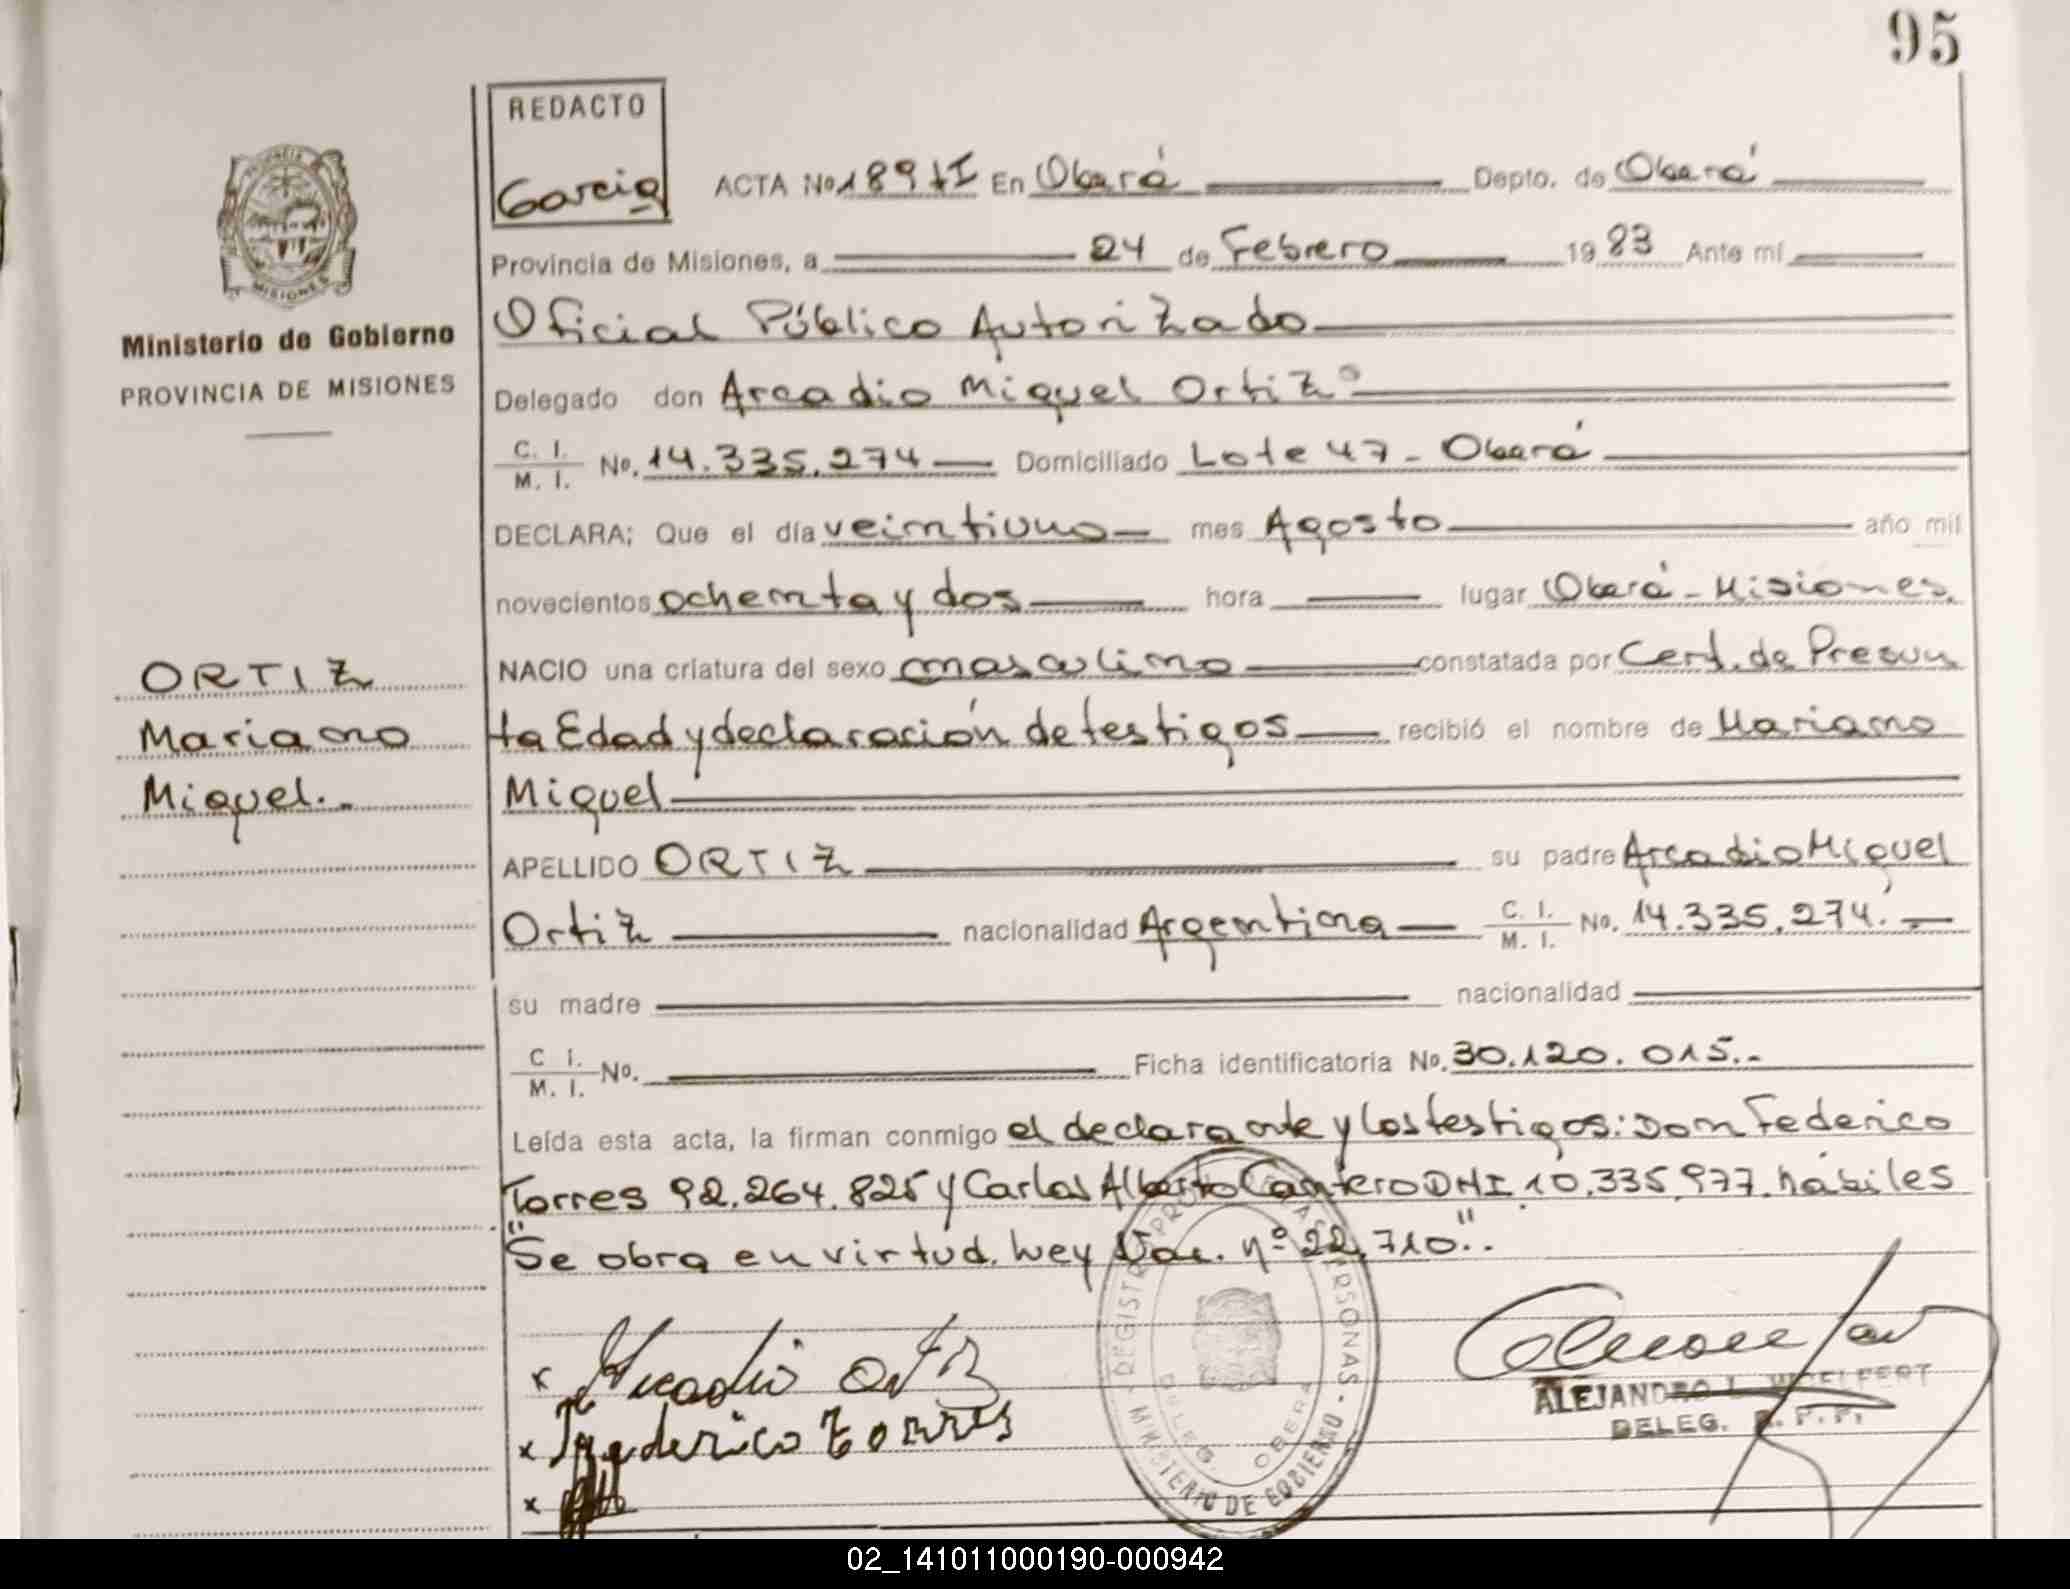 95
REDACTO
Garcia
ACTA No 189 tI En Oberá Depto. de Oberá
Provincia de Misiones, a 24 de Febrero 1983 Ante mí
Oficial Público Autorizado
Delegado don Arcadio Miguel Ortiz
C. I. M. I. No. 14.335.274 Domiciliado Lote 47 - Oberá
DECLARA; Que el día veintiuno mes Agosto año mil
novecientos ochenta y dos hora lugar Oberá - Misiones.
NACIO una criatura del sexo masculino constatada por Cert. de Presun
ta Edad y declaración de testigos recibió el nombre de Mariano
Miguel
APELLIDO ORTIZ su padre Arcadio Miguel
Ortiz nacionalidad Argentina C. I. M. I. No. 14.335.274.-
su madre nacionalidad
C I. M. I. No. Ficha identificatoria No. 30.120.015.-
Leída esta acta, la firman conmigo el declarante y los testigos: Don Federico
Torres 92.264.825 y Carlos Alberto Cantero DNI 10.335.977. hábiles
"Se obra en virtud. Ley Nac. nº 22.710"..
x Arcadio Ortiz
x Federico Torres
x
PROVINCIA
MISIONES
Ministerio de Gobierno
PROVINCIA DE MISIONES
ORTIZ
Mariano
Miguel.-
REGISTRO PROV. DE LAS PERSONAS
DELEG. OBERA
MINISTERIO DE GOBIERNO
ALEJANDRO
DELEG. R. P. P.
02_141011000190-000942